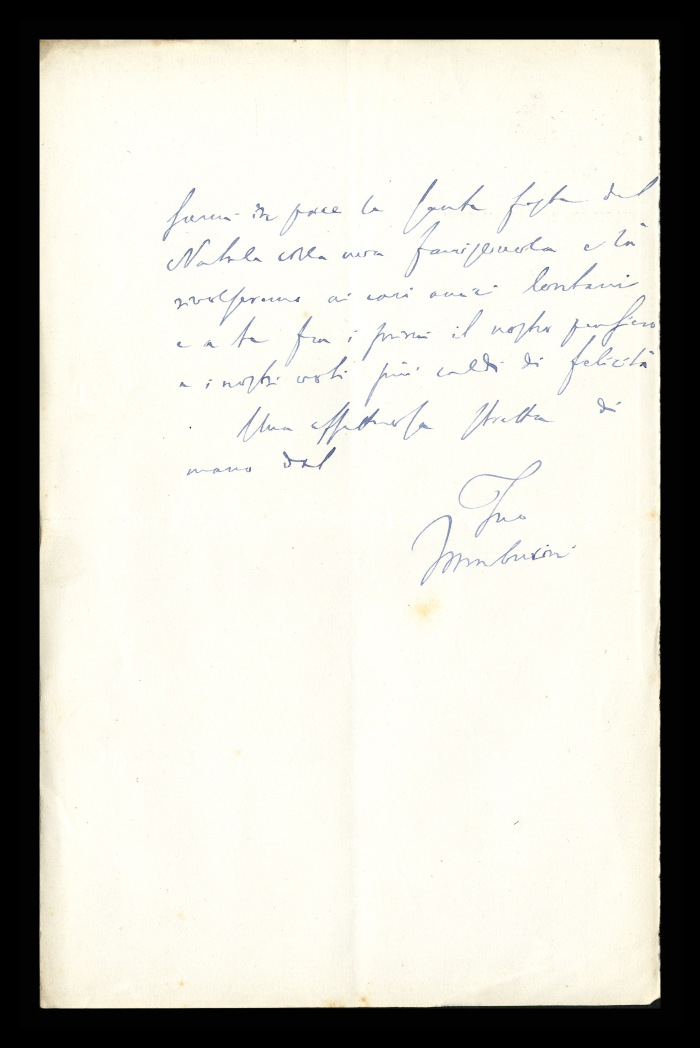 in pace la santa festa del
Natale colla mia famigliuola e là
rivolgeremo ai cari amici lontani
e a te fra i primi il nostro pensiero
e i nostri voti più caldi di felicità
Una affettuosa stretta di
mano dal
Tuo